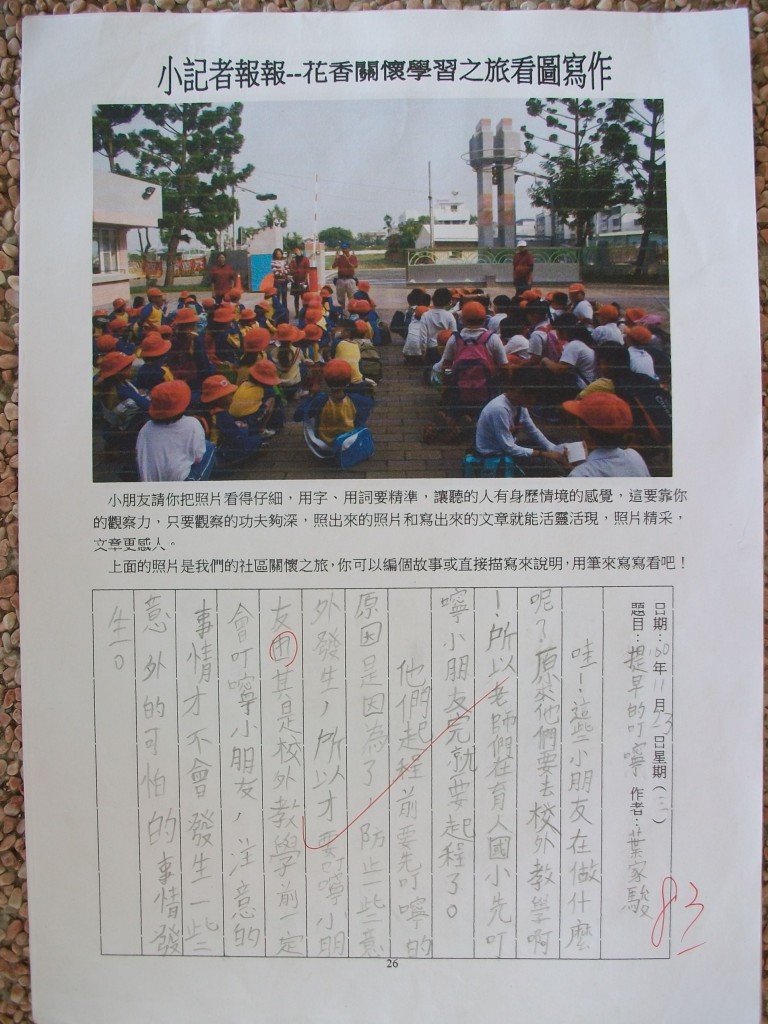 小記者報報--花香關懷學習之旅看圖寫作
小朋友請你把照片看得仔細，用字、用詞要精準，讓聽的人有身歷情境的感覺，這要靠你
的觀察力，只要觀察的功夫夠深，照出來的照片和寫出來的文章就能活靈活現，照片精采，
文章更感人。
上面的照片是我們的社區關懷之旅，你可以編個故事或直接描寫來說明，用筆來寫寫看吧！
日期：100年11月23日星期（三）
題目：提早的叮嚀 作者：葉家駿
哇！這些小朋友在做什麼
呢？原來他們要去校外教學啊
！所以老師們在育人國小先叮
嚀小朋友完就要起程了。
他們起程前要先叮嚀的
原因是因為了，防止一些意
外發生，所以才要叮嚀小朋
友用其是校外教學前一定
會叮嚀小朋友，注意的
事情才不會發生一些
意外的可怕的事情發
生。
83
26